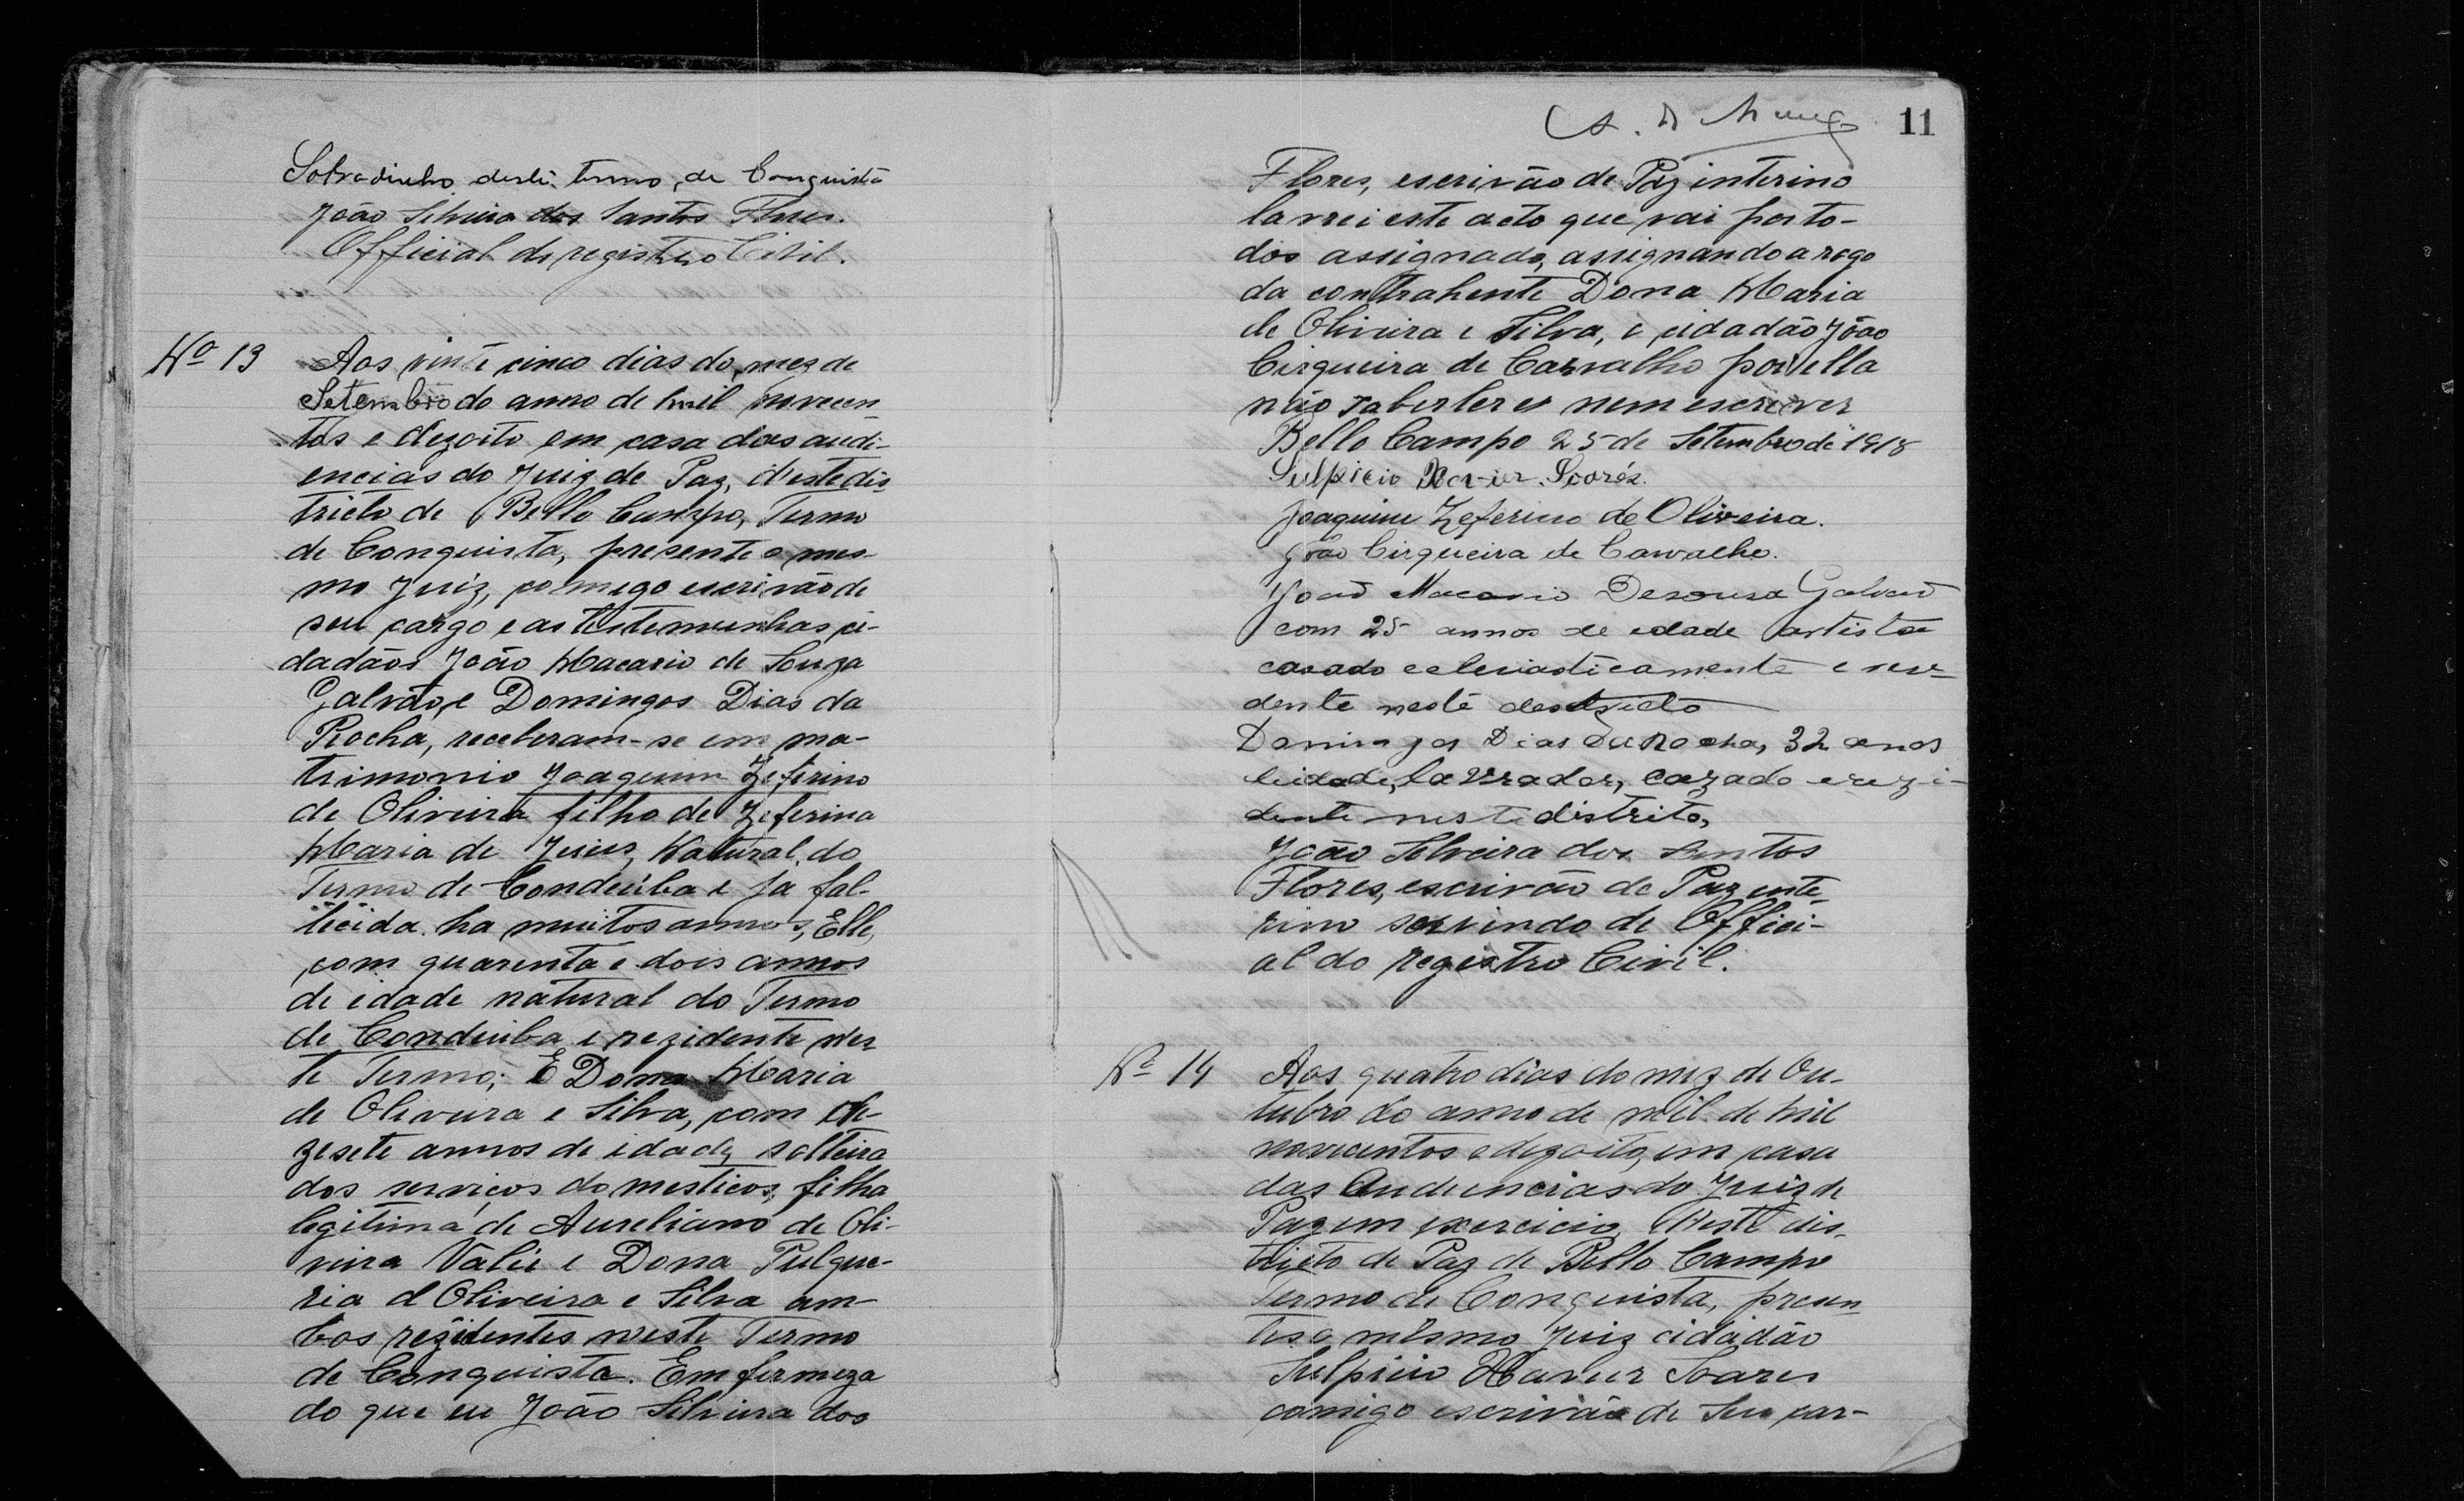 Sobradinho deste termo, de Conquista
João Silveira dos Santos Flores.
Official do registro Civil.
Nº 13
Aos vinte cinco dias do mez de
Setembro do anno de mil novecen
tos e dezoito em casa das audi-
encias do Juiz de Paz, d'este dis
tricto de Bello Campo, Termo
de Conquista, presente o mes-
mo Juiz, commigo escrivão de
seu cargo e as testemunhas ci-
dadãos João Macario de Souza
Galvão, e Domingos Dias da
Rocha, receberam-se em ma-
trimonio Joaquim Zeferino
de Oliveira filho de Zeferina
Maria de Jesus, Natural do
Termo de Condeúba e já fal-
lecida ha muitos annos, Elle,
com quarenta e dois annos
de idade natural do Termo
de Condeúba e rezidente nes
te Termo; E Dona Maria
de Oliveira e Silva, com de-
zesete annos de idade, solteira
dos serviços domesticos, filha
legitima de Aureliano de Oli-
veira Valie e Dona Pulque-
ria d Oliveira e Silva am-
bos rezidentes neste Termo
de Conquista. Em firmeza
do que eu João Silveira dos
11
Flores, escrivão de Paz interino
lavrei este acto que vai por to-
dos assignado, assignando a rogo
da contrahente Dona Maria
de Oliveira e Silva, o cidadão João
Cirqueira de Carvalho por ella
não saber ler e nem escrever
Bello Campo 25 de Setembro de 1918
Sulpicio Xavier Soares.
Joaquim Zeferino de Oliveira.
João Cirqueira de Carvalho.
João Macario Desousa Galvão
com 25 annos de edade artista
casado eclesiasticamente e resi-
dente neste destricto
Domingos Dias da Rocha, 32 anos
deidade, lavrador, cazado e rezi-
dente neste distrito,
João Silveira dos Santos
Flores, escrivão de Paz inte-
rino servindo de Offici-
al do registro Civil.
Nº 14
Aos quatro dias do mez de Ou-
tubro do anno de mil de mil
novecentos e dezoito, em casa
das Audiencias do Juiz de
Paz em exercicio, Neste dis-
tricto de Paz de Bello Campo
Termo de Conquista, presen
tes o mesmo Juiz cidadão
Sulpicio Xavier Soares
comigo escrivão de seu car-